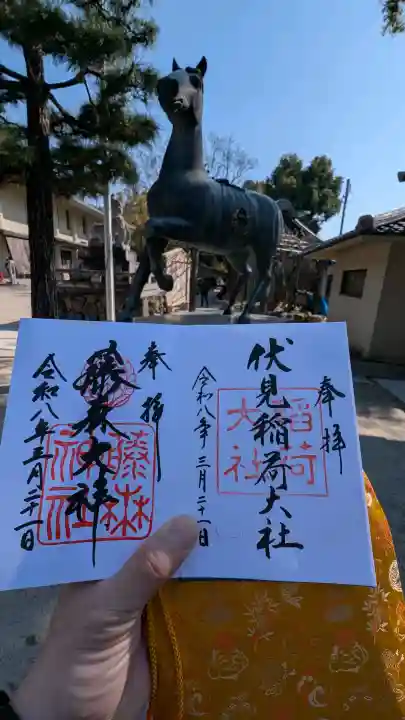 奉拝
伏見稲荷大社
稲荷
大社
令和八年三月二十一日
奉拝
藤森大神
藤森
神社
令和八年三月二十一日